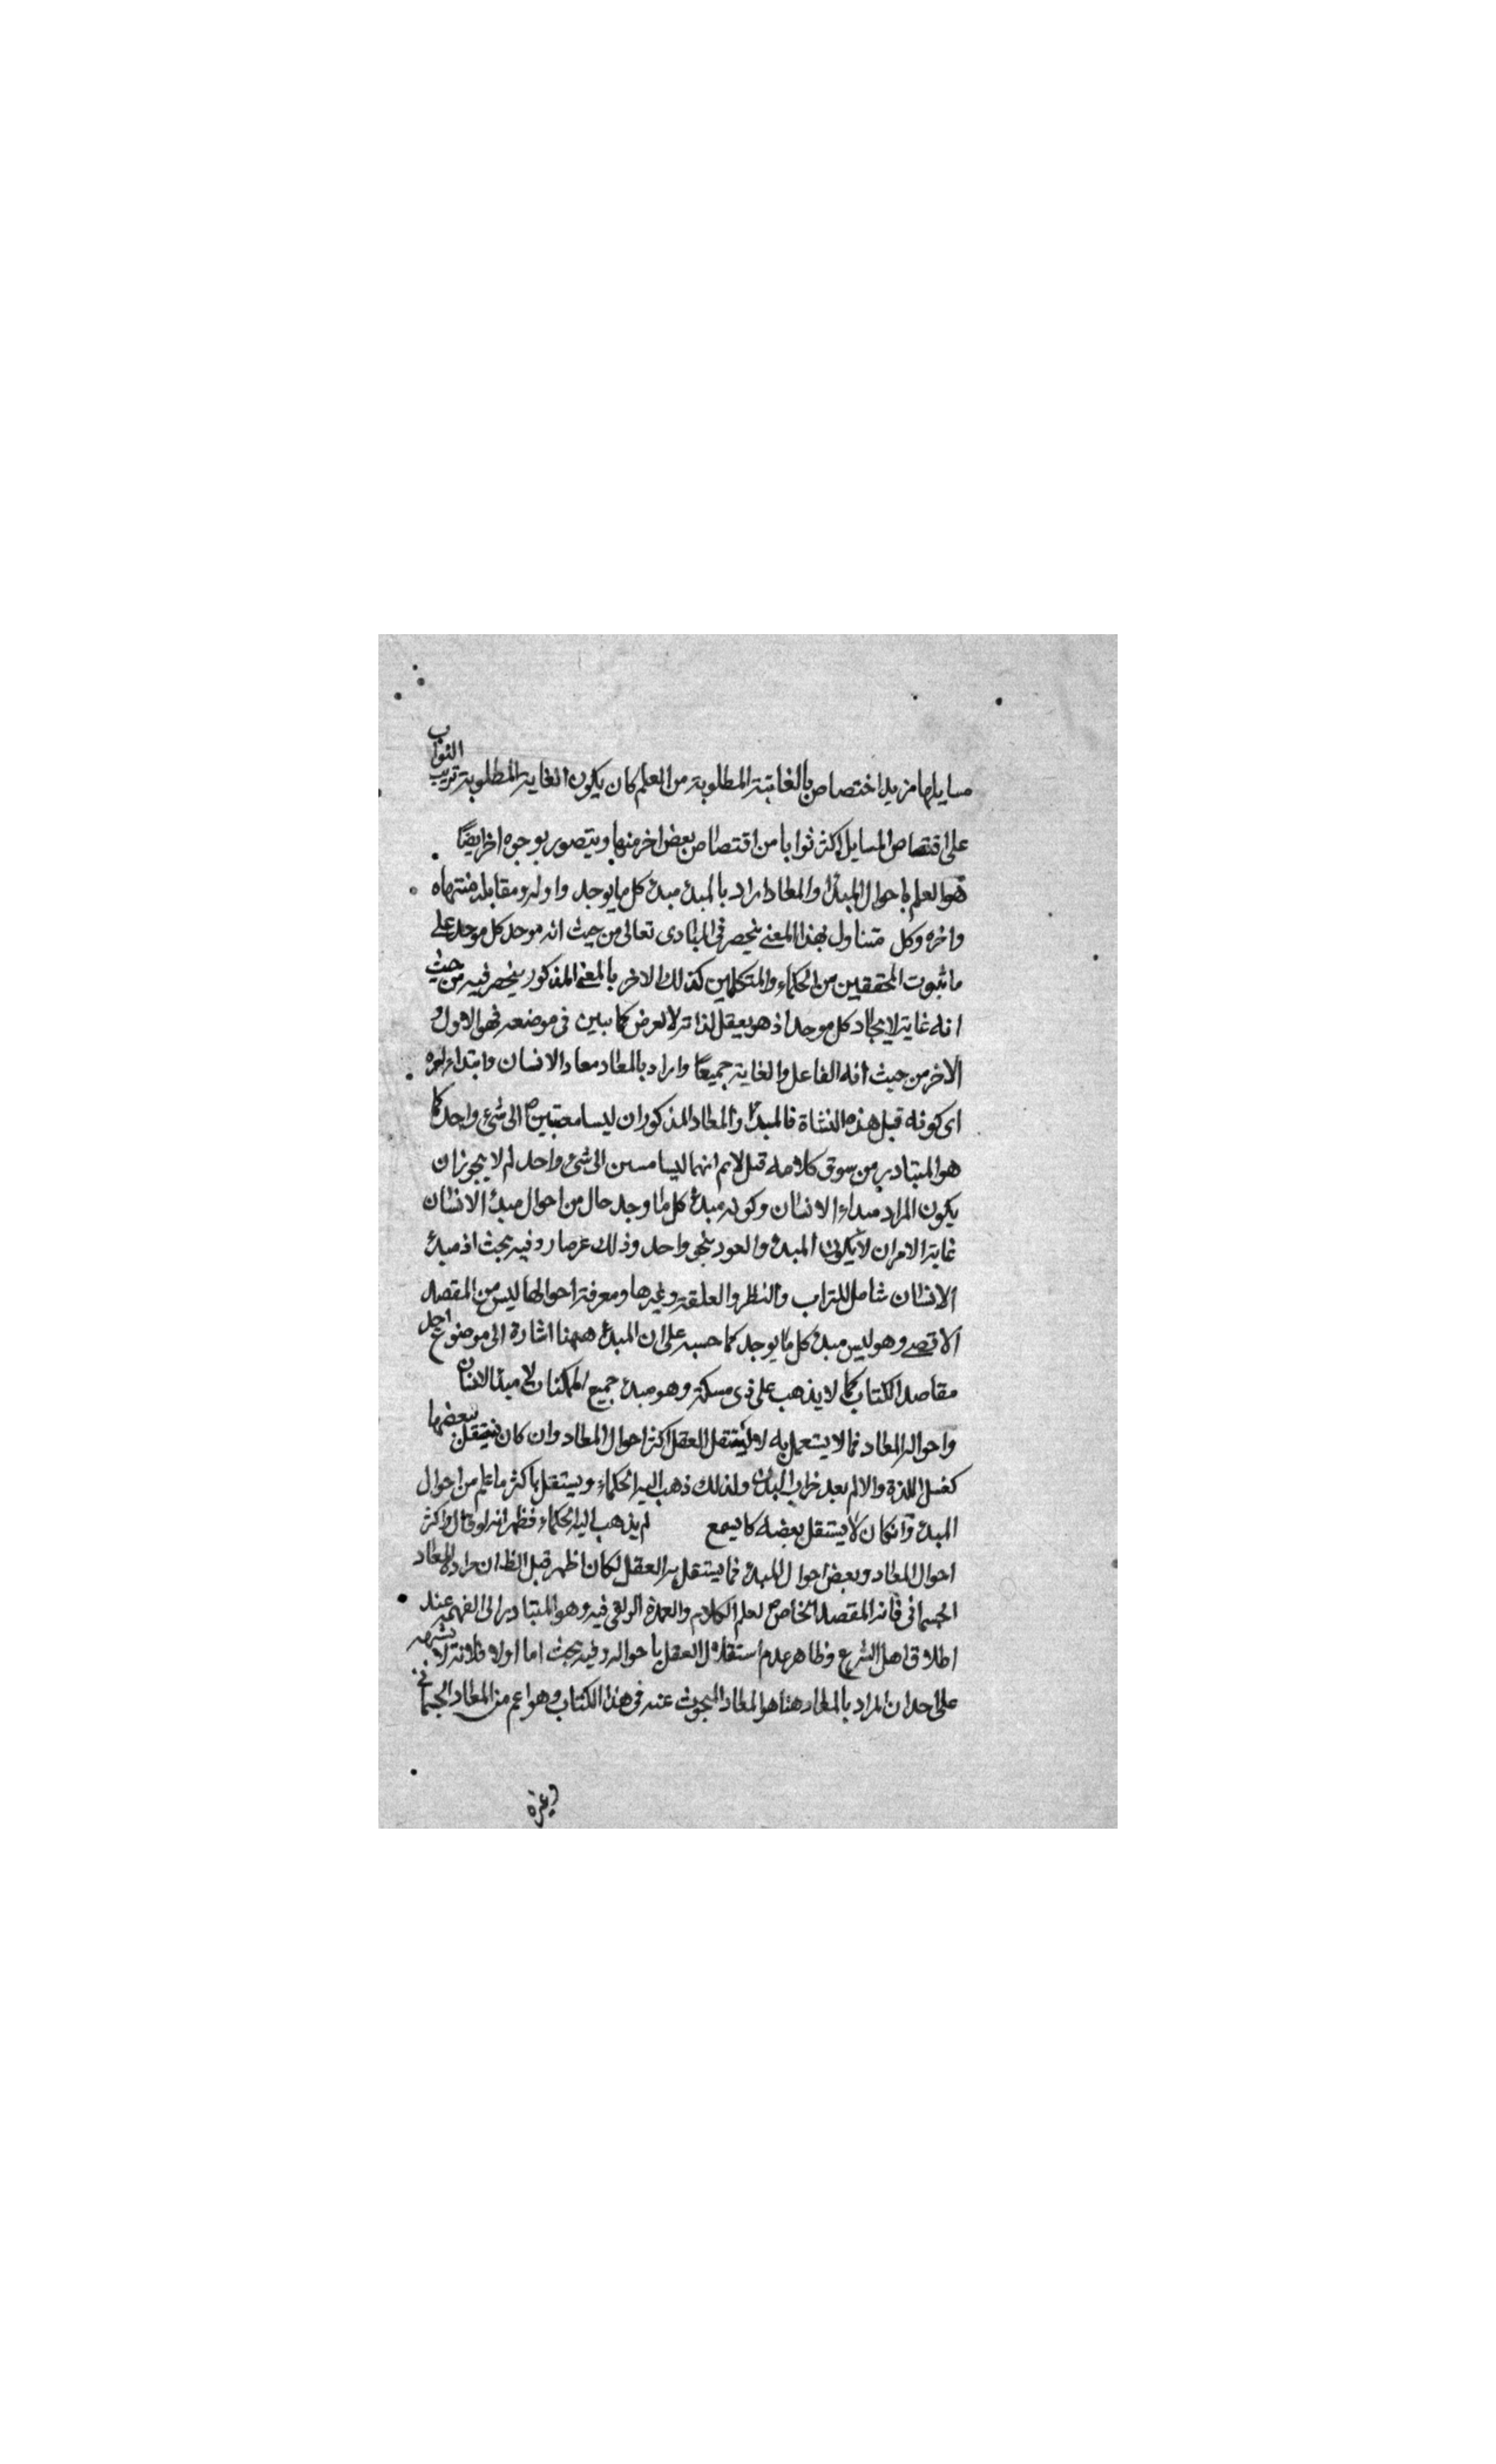 مسايلها مزيد اختصاص بالغاية المطلوبة من العلم كان يكون الغاية المطلوبة ترتيب الثواب
على اقتصاص المسايل اكثر ثوابا من اقتصاص بعض اخر منها ويتصور بوجوه اخر ايضا
هو العلم باحوال المبدأ والمعاد اراد بالمبدء مبدء كل ما يوجد واوله ومقابله منتهاه
واخره وكل متناول بهذا المعنى ينحصر في البادى تعالى من حيث انه موجد كل موجد على
ما ثبوت المحققين من الحكماء والمتكلمين كذلك الاخر بالمعنى المذكور ينحصر فيه من حيث
انه غاية لايجاد كل موجد اذ هو يعقل لذاته لا لعرض كما يبين في موضعه فهو الاول و
الاخر من حيث انه الفاعل والغاية جميعا واراد بالمعاد معاد الانسان وابتداء
اى كونه قبل هذه النشاة فالمبدأ والمعاد المذكوران ليسا الى شئ واحد كما
هو المتبادر من سوق كلامه قبل لا نم انهما ليسا الى شئ واحد لم لا يجوز ان
يكون المراد مبداء الانسان وكونه مبدء كل ما وجد حال من احوال مبدء الانسان
غاية الامر ان لا يكون المبدء والعود بنحو واحد وذلك وفيه بحث اذ مبدء
الانسان شامل للتراب والنظر والعلقة وغيرها ومعرفة احوالها ليس من المقصد
الاقصى وهو ليس مبدء كل ما يوجد كما حسبه على ان المبدء ههنا اشارة الى موضوع اجل
مقاصد الكتاب كما لا يذهب على ذى مسكة وهو مبدء جميع الممكنات لا مبدأ الانسان
واحواله المعاد فما لا يشعل به لا يستقل العقل اكثر احوال المعاد وان كان يستقل ببعضها
اللذة والالم بعد خراب البدن ولذلك ذهب اليه الحكماء ويستقل باكثر ما علم من احوال
المبدء وان كان لا يستقل بعضه كا لسمع لم يذهب اليه الحكماء فظهر انه لو قال واكثر
احوال المعاد وبعض احوال المبدء فما يستقل به العقل لكان اظهر قبل الظ ان مراده المعاد
الجسمانى فانه المقصد الخاص لعلم الكلام والعمدة فيه وهو المتبادر الى الفهم عند
اطلاق اهل الشرع وظاهر عدم استقلال العقل باحواله وفيه بحث اما اولا فلانه لا يشتبه
على احد ان المراد بالمعاد هنا هو المعاد المبحوث عنه في هذا الكتاب وهو اعم من المعاد الجسمانى
وغيره